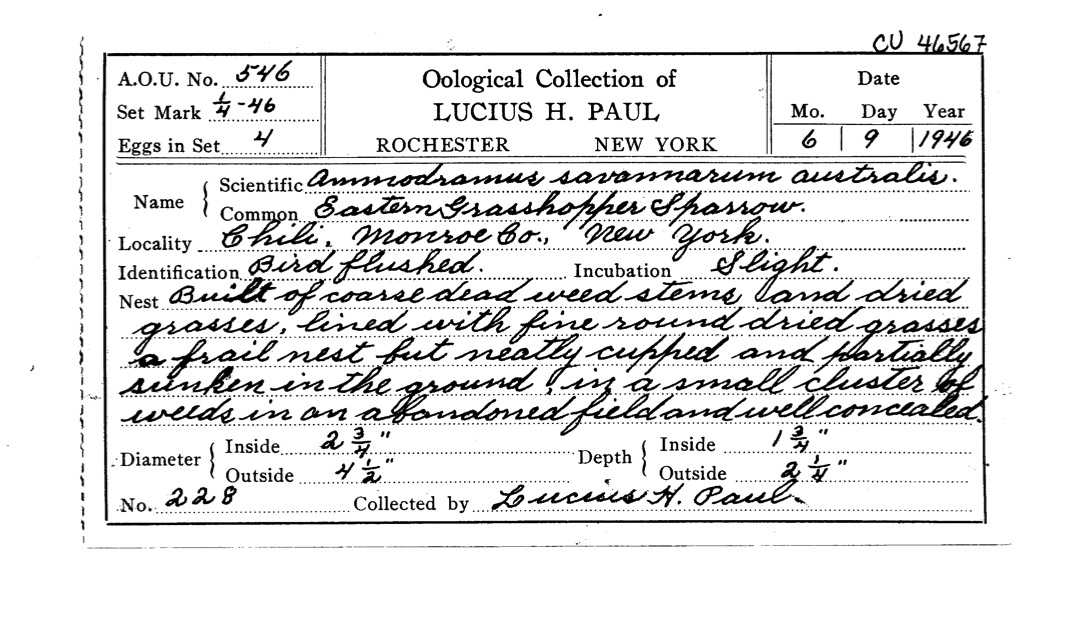 CU 46567
A.O.U. No. 546
Set Mark 1/4-46
Eggs in Set 4
Oological Collection of
LUCIUS H. PAUL
ROCHESTER NEW YORK
Date
Mo. Day Year
6 9 1946
Name Scientific Ammodramus savannarum australis.
Common Eastern Grasshopper Sparrow.
Locality Chili, Monroe Co., New York.
Identification Bird flushed. Incubation Slight.
Nest Built of coarse dead weed stems and dried
grasses, lined with fine round dried grasses
a frail nest but neatly cupped and partially
sunken in the ground, in a small cluster of
weeds in an abandoned field and well concealed.
Diameter Inside 2 3/4" Depth Inside 1 3/4"
Outside 4 1/2" Outside 2 1/4"
No. 228 Collected by Lucius H. Paul.